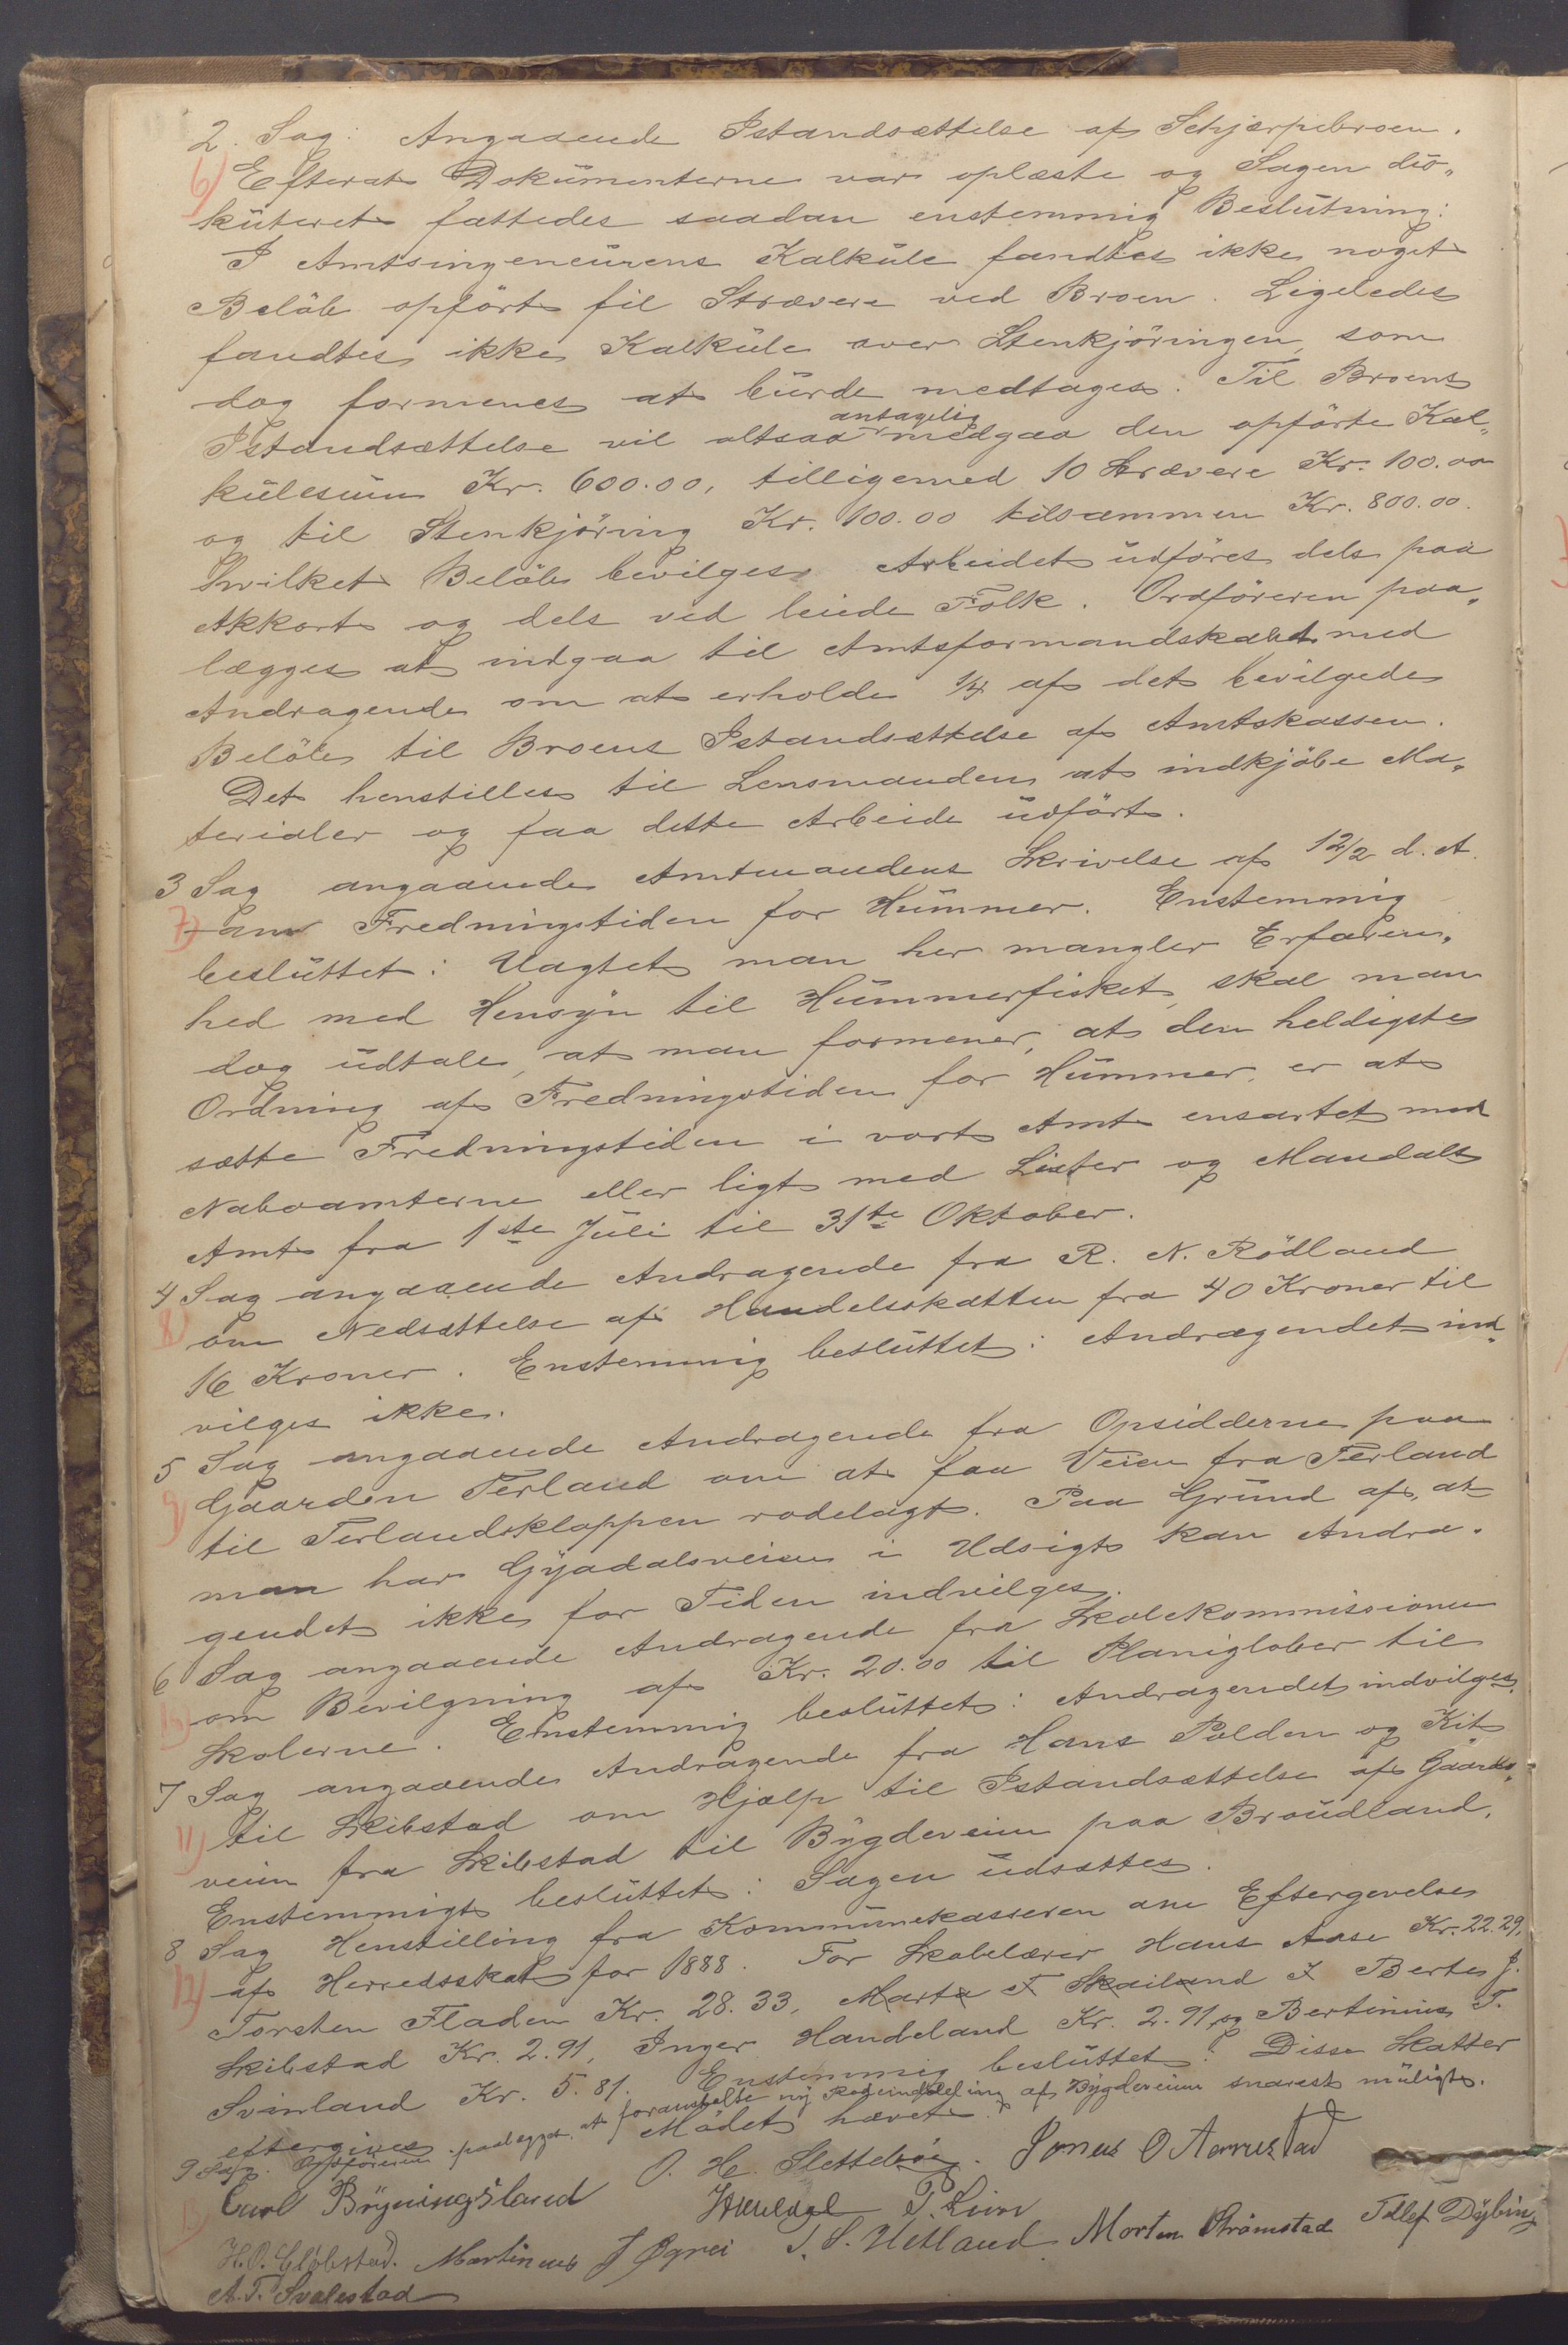 2. Sag: Angaaende Istandsættelse af Schjærpebroen.
6) Efterat Dokümenterne var oplæste og Sagen dis„
küteret fattedes saadan enstemmig Beslütning:
I Amtsingeneürens Kalküle fandtes ikke noget
Beløb opført til Strævere ved Broen. Ligeledes
fandtes ikke Kalküle over Stenkjøringen, som
dog formenes at bürde medtages. Til Broens
antagelig
Istandsættelse vil altsaa medgaa den opførte Kal„
külesüm Kr. 600.00, tilligemed 10 Strævere Kr. 100.00
og til Stenkjøring Kr. 100.00 tilsammen Kr. 800.00.
Hvilket Beløb bevilges. Arbeidet üdføres dels paa
Akkort og dels ved leiede Folk. Ordføreren paa„
lægges at indgaa til Amtsformandskabet med
Andragende om at erholde 1/4 af det bevilgede
Beløb til Broens Istandsættelse af Amtskassen.
Det henstilles til Lensmanden at indkjøbe Ma„
terialer og faa dette Arbeide üdført.
3 Sag angaaende Amtmandens Skrivelse af 12/2 d. A.
7) om Fredningstiden for Hümmer. Enstemmig
beslüttet: Uagtet man her mangler Erfaren„
hed med Hensyn til Hümmerfisket, skal man
dog üdtale, at man formener, at den heldigste
Ordning af Fredningstiden for Hümmer, er at
sætte Fredningstiden i vort Amt ensartet med
Naboamterne eller ligt med Lister og Mandals
Amt fra 1ste Jüli til 31te Oktober.
4 Sag angaaende Andragende fra R. N. Rödland
8) om Nedsættelse af Handelsskatten fra 40 Kroner til
16 Kroner. Enstemmig beslüttet: Andragendet ind„
vilges ikke.
5 Sag angaaende Andragende fra Opsidderne paa
9) Gaarden Terland om at faa Veien fra Terland
til Terlandsklappen rodelagt. Paa Gründ af, at
man har Gyadalsveien i Udsigt kan Andra„
gendet ikke for Tiden indvilges.
6 Sag angaaende Andragende fra Skolekommissionen
10) om Bevilgning af Kr. 20.00 til Planiglober til
Skolerne. Enstemmig beslüttet: Andragendet indvilges.
7 Sag angaaende Andragende fra Hans Polden og Kit
11) til Skibstad om Hjælp til Istandsættelse af Gaards„
veien fra Skibstad til Bygdeveien paa Broüdland.
Enstemmigt beslüttet: Sagen üdsættes.
8 Sag Henstilling fra Kommünekasseren om Eftergivelse
12) af Herredsskat for 1888. For Skolelærer Hans Aase Kr. 22.29,
Torsten Fladen Kr. 28.33, Marta T Skailand I Berte J.
Skibstad Kr. 2.91, Inger Handeland Kr. 2.91 og Bertinius T.
Svinland Kr. 5.81. Enstemmig beslüttet: Disse Skatter
eftergives
9 Sag. Ordföreren paalægges, at foranstalte ny Rodeinddeling af Bygdeveiene snarest müligt.
Mødet hævet.
O. H. Slettebøe. Jonas O Aarrestad
Carl Bryningsland P. Lim
H. O. Gløbstad. Martinus J Øgrei J. S. Hetland Morten Strömstad Tollef Dybing
A. T. Svalestad